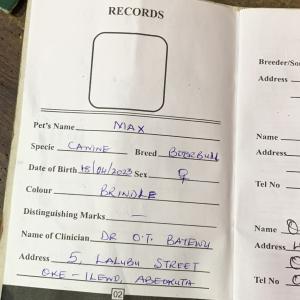 RECORDS
Pet's Name MAX
Specie CANINE Breed BOERBULL
Date of Birth 18/04/2023 Sex ♀
Colour BRINDLE
Distinguishing Marks —
Name of Clinician DR O.T. BATENU
Address 5, LALUBU STREET
OKE-ILEWO, ABEOKUTA
02
Breeder/So
Address
Name
Address
Tel No
Name
Address
Tel No